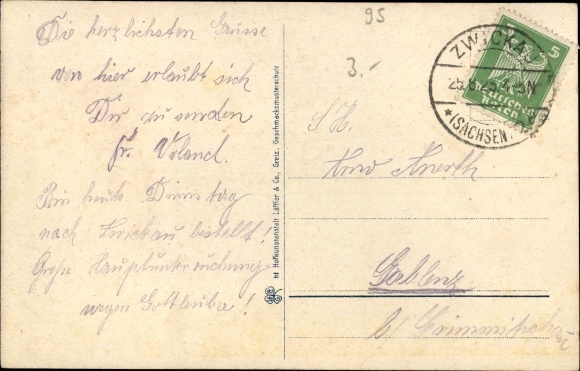 95
3.-
Die herzlichsten Grüsse
von hier erlaubt sich
Dir zu senden
Fr. Voland.
Bin heute Dienstag
nach Zwickau bestellt!
Große Hauptuntersuchung
wegen Gottleuba!
Hofkunstanstalt Löffler & Co., Greiz. Geschmacksmusterschutz
ZWICKAU
(SACHSEN)
5
Deutsches
Reich
Gablenz
b/ Crimmitschau